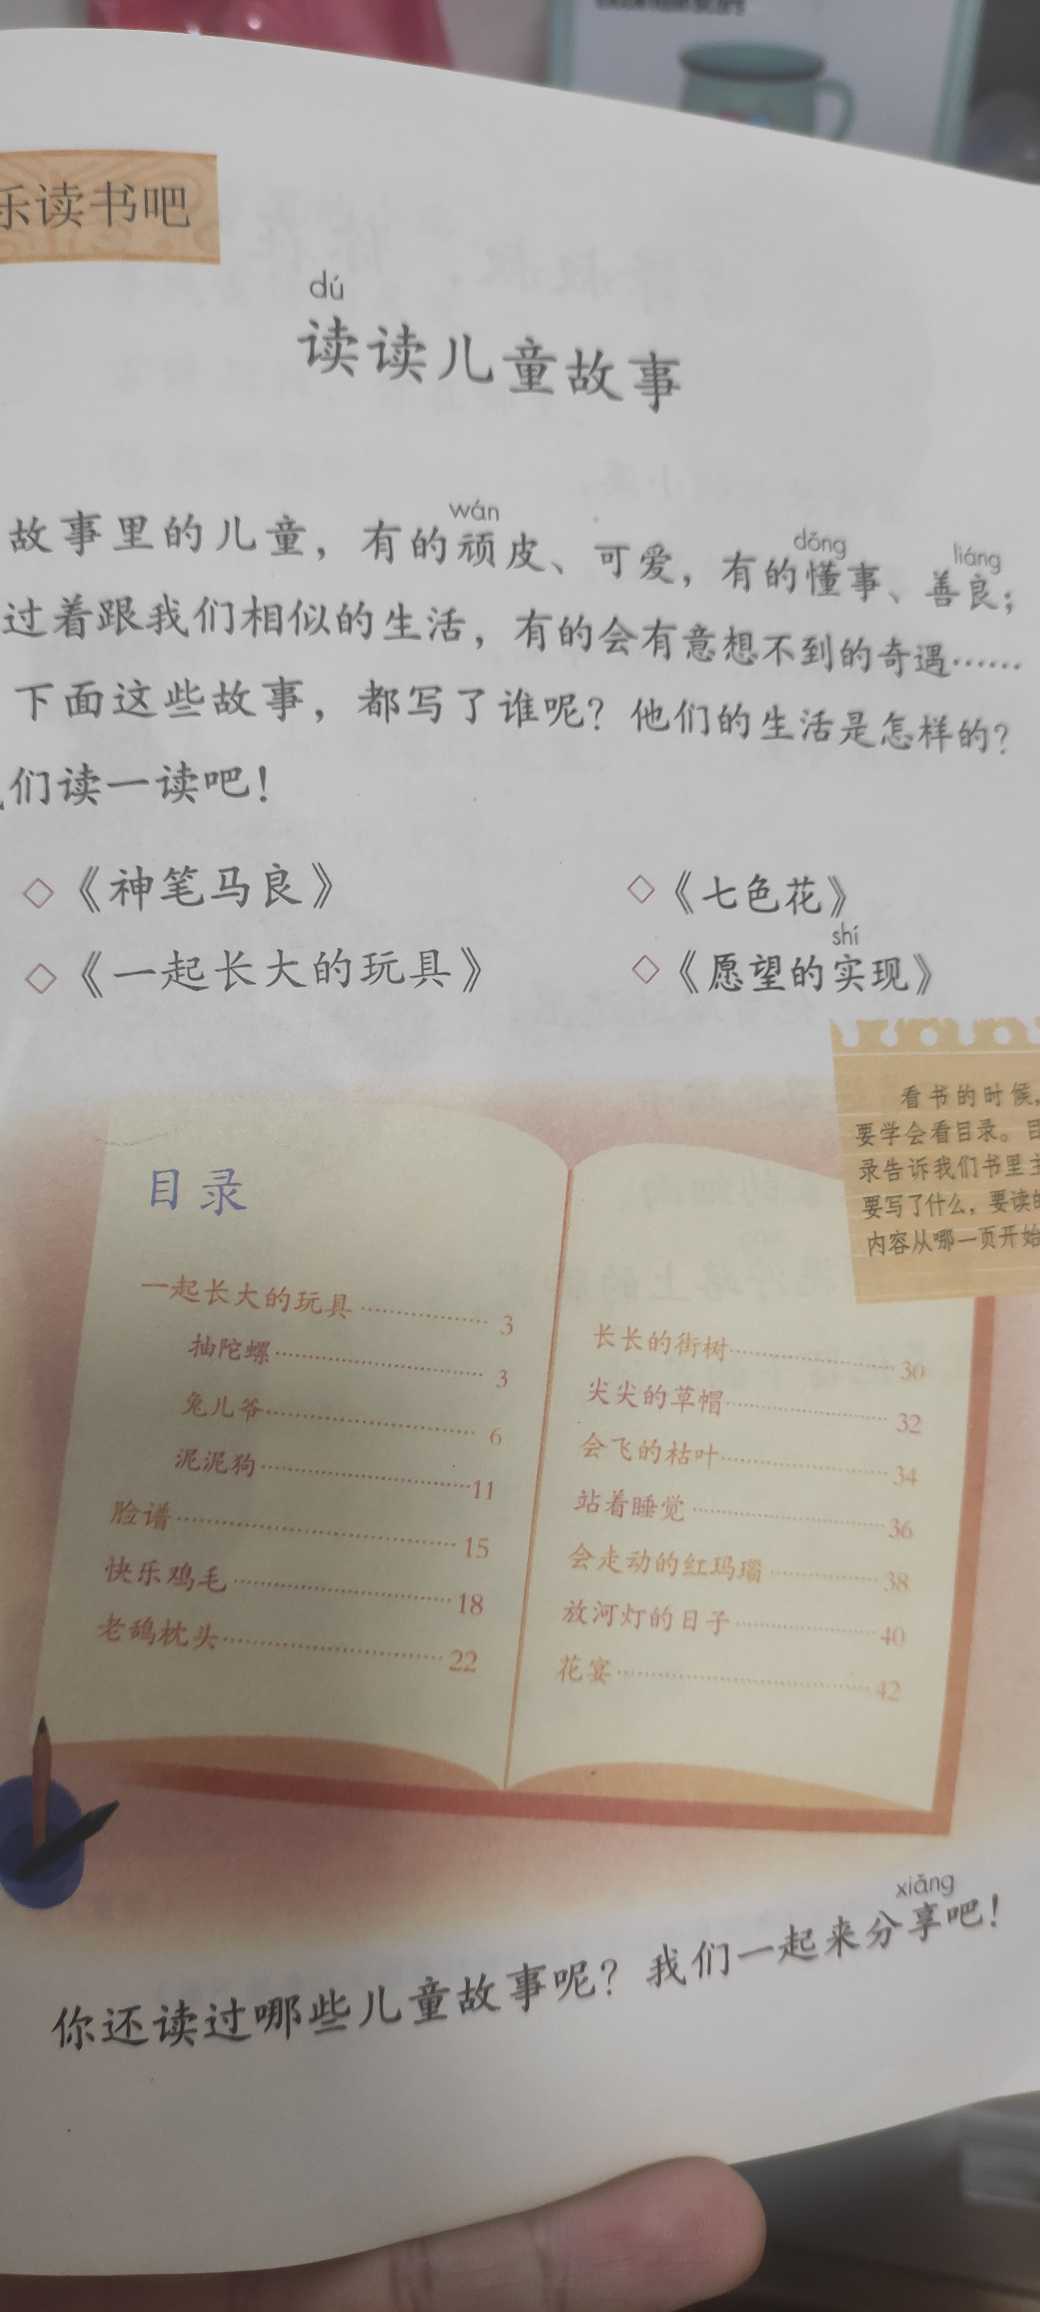 乐读书吧
dú
读读儿童故事
wán dǒng liáng
故事里的儿童，有的顽皮、可爱，有的懂事、善良；
过着跟我们相似的生活，有的会有意想不到的奇遇……
下面这些故事，都写了谁呢？他们的生活是怎样的？
们读一读吧！
◇《神笔马良》 ◇《七色花》
shí
◇《一起长大的玩具》 ◇《愿望的实现》
看书的时候，
要学会看目录。目
录告诉我们书里主
要写了什么，要读的
内容从哪一页开始
目录
一起长大的玩具……3
抽陀螺……3
兔儿爷……6
泥泥狗……11
脸谱……15
快乐鸡毛……18
老鸹枕头……22
长长的街树……30
尖尖的草帽……32
会飞的枯叶……34
站着睡觉……36
会走动的红玛瑙……38
放河灯的日子……40
花宴……42
xiǎng
你还读过哪些儿童故事呢？我们一起来分享吧！